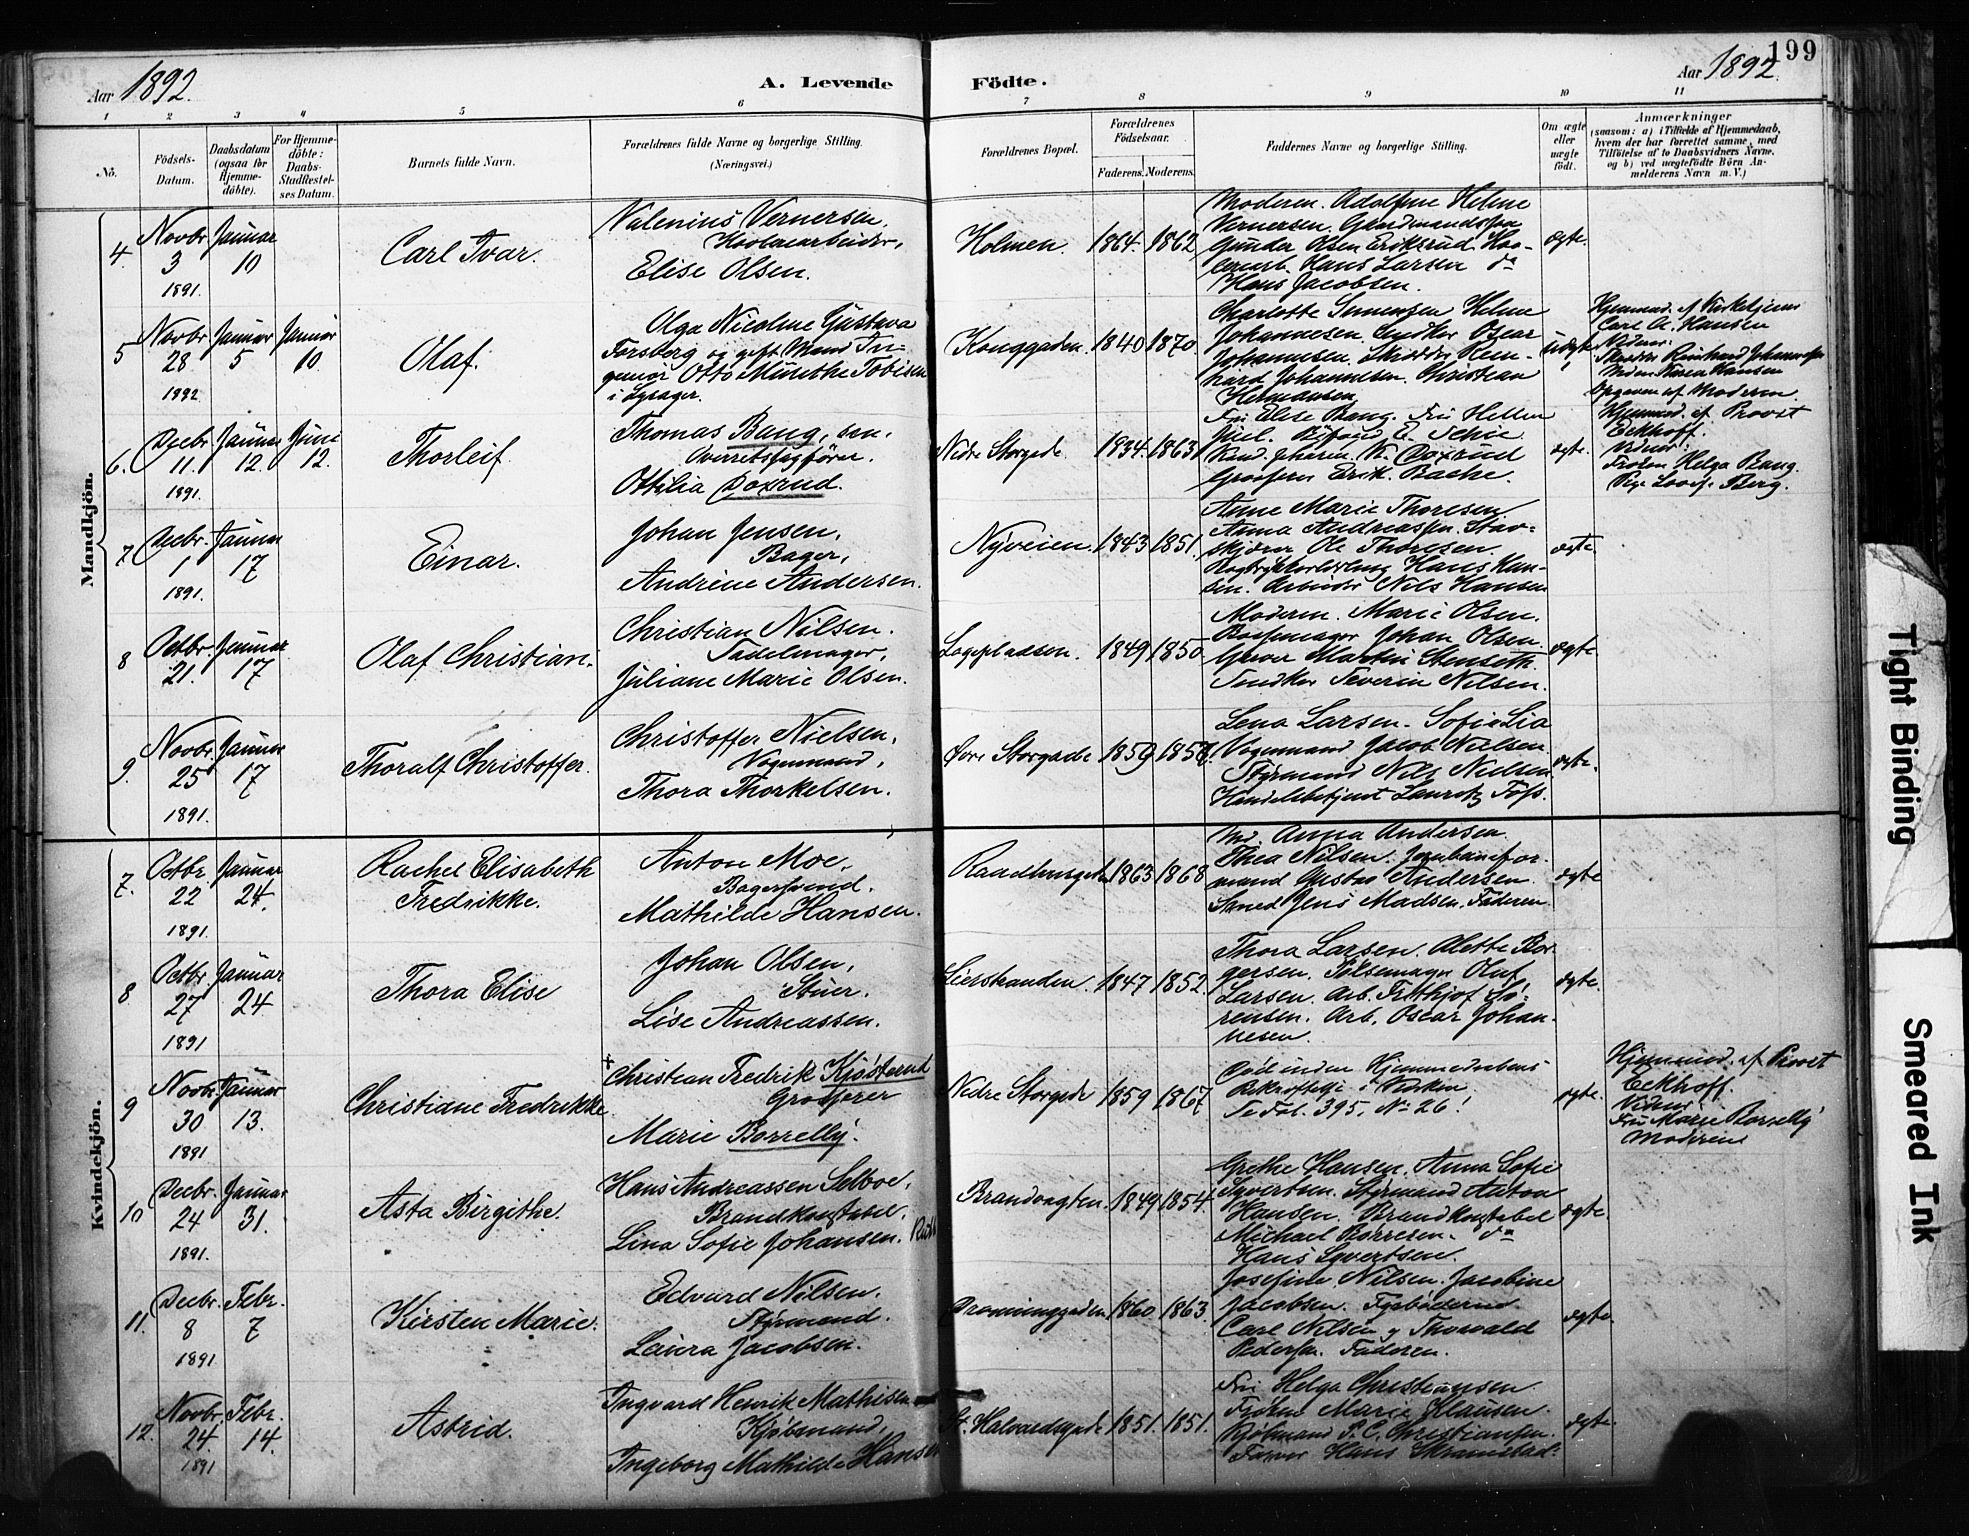 199
Aar 1892.
A. Levende
Födte.
Aar 1892.
1 2 3 4 5 6 7 8 9 10 11
No.
Födsels-
Datum.
Daabsdatum
(ogsaa for
Hjemme-
döbte).
For Hjemme-
döbte:
Daabs-
Stadfestel-
ses Datum.
Barnets fulde Navn.
Forældrenes fulde Navne og borgerlige Stilling.
(Næringsvei.)
Forældrenes Bopæl.
Forældrenes
Födselsaar.
Faderens. Moderens.
Faddernes Navne og borgerlige Stilling.
Om ægte
eller
uægte
födt.
Anmærkninger
(saasom: a) i Tilfælde af Hjemmedaab,
hvem der har forrettet samme, med
Tilföielse af to Daabsvidners Navne,
og b) ved uægtefödte Börn An-
melderens Navn m. V.)
Mandkjön.
4. Novbr. 3 1891. Januar 10
Carl Ivar.
Valenius Vernersen,
Elise Olsen.
Holmen. 1864. 1862
Moderen. Adolfine Helene
Vernersen. Grundmandsfru
Gunder Olsen Eriksrud.
Hans Larsen do
Hans Jacobsen.
ægte.
5 Novbr. 28 1892 Januar 5 Januar 10.
Olaf.
Olga Nicoline Gustava
Forsberg og gift Mand In-
geniør Otto Munthe Tobisen
i Lysager.
Konggaden. 1840 1870
Charlotte Simensen Helene
Johannesen. Snedker Oscar
Johannesen. Skrædder Rein-
hard Johannesen. Christian
Hermansen.
uægte
Hjemmed. af Kirketjener
Carl A. Hansen
Vidner:
Skrædder Reinhard Johannesen
Karen Hansen
Opgaven af Moderen.
6. Decbr. 11. 1891. Januar 12. Juni 12.
Thorleif.
Thomas Bang, sen.
Overretssagfører.
Ottilia Doxrud.
Nedre Storgade. 1834. 1863
Fru Elise Bang. Fru Hellen
Juel. Byfoged E. Schie
K. Doxrud
Grosserer Erik Bache.
ægte.
Hjemmed. af Provst
Eckhoff.
Vidner:
Frøken Helga Bang.
Pige Lovise Berg.
7. Decbr. 1 1891. Januar 17
Einar.
Johan Jensen,
Bager,
Andrine Andersen.
Nyveien. 1843 1851.
Anne Marie Thoresen
Anna Andreassen. Stav-
skjærer Ole Thoresen.
Bogtrykkerlærling Hans Han-
sen. Arbeider Nils Hansen
ægte.
8 Octbr. 21. Januar 17
Olaf Christian.
Christian Nilsen.
Sadelmager,
Juliane Marie Olsen.
Løgepladsen. 1849 1850
Moderen. Marie Olsen.
Bøssemager Johan Olsen
Garver Martin Stenseth.
Snedker Severin Nilsen.
ægte.
9. Novbr. 25 1891. Januar 17
Thoralf Christoffer.
Christoffer Nielsen,
Vognmand,
Thora Thorkelsen.
Øvre Storgade 1859
Lena Larsen. Sofie Lia
Vognmand Jacob Nielsen
Styrmand Nils Nielsen
Handelsbetjent Lauritz Foss.
ægte.
Kvindekjön.
7. Octbr. 22 1891. Januar 24.
Rachel Elisabeth
Fredrikke.
Anton Moe,
Bagersvend.
Mathilde Hansen.
Raadhusgaden 1863 1868
Anna Andersen
Thea Nilsen. Jernbanefor-
mand Gustav Andersen
Smed Jens Madsen. Faderen
ægte
8 Octbr. 27 1891 Januar 24
Thora Elise
Johan Olsen,
Stuer.
Lise Andreassen.
Lierstranden 1847 1852.
Thora Larsen. Alette Bor-
gersen. Pølsemager Olaf
Larsen. Arb. Frithjof Sö-
rensen. Arb. Oscar Johan-
nesen.
ægte.
9 Novbr. 30 1891 Januar 13.
Christiane Fredrikke.
+ Christian Fredrik Kjøsterud
Grosserer
Marie Borrelly.
Nedre Storgade 1859 1867
Død inden Hjemmedaabens
Bekræftelse i Kirken,
Se Fol. 395, No 26!
ægte.
Hjemmed. af Provst
Eckhoff
Vidner:
Fru Marie Borrelly
Moderen
10 Decbr. 24 1891. Januar 31.
Asta Birgithe.
Hans Andreassen Selboe,
Brandkonstabel.
Lina Sofie Johansen.
Brandvagten. 1849 1854.
Grethe Hansen. Anna Sofie
Syvertsen. Styrmand Anton
Hansen. Brandkonstabel
Michael Børresen. do
Hans Syvertsen.
ægte.
11. Decbr. 8 1891 Febr. 7
Kirsten Marie.
Edvard Nilsen.
Styrmand.
Laura Jacobsen.
Dronninggaden 1860 1863.
Josefine Nilsen. Jacobine
Jacobsen. Fyrbøderne
Carl Nilsen og Thorvald
Pedersen. Faderen.
ægte.
12. Novbr. 24. 1891 Febr. 14.
Astrid.
Ingvard Henrik Mathisen
Kjøbmand,
Ingeborg Mathilde Hansen
St. Halvardsgade 1851. 1851.
Fru Helga Christiansen
Frøken Marie Clausen.
Kjøbmand P. C. Christiansen.
Farver Hans Skramstad.
ægte.
Tight Binding
Smeared Ink